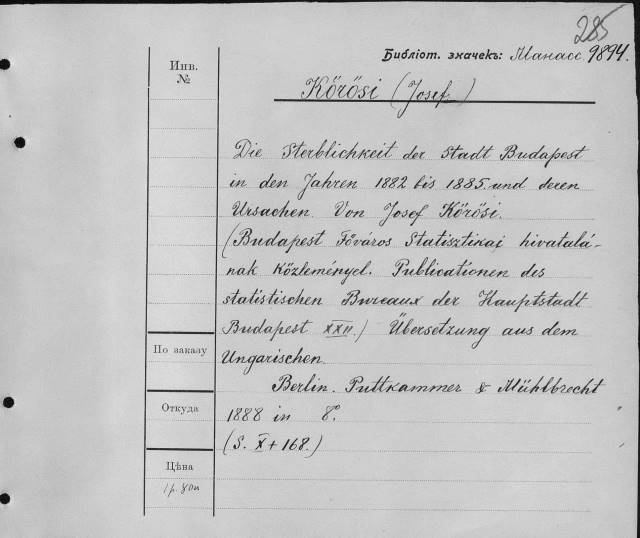 285
Библіот. значекъ: Манасс. 9894.
Инв.
№
Kőrősi (Josef)
Die Sterblichkeit der Stadt Budapest
in den Jahren 1882 bis 1885. und deren
Ursachen. Von Josef Kőrősi.
(Budapest Főváros Statisztikai hivatalá-
nak közleményei. Publicationen des
statistischen Bureaux der Hauptstadt
Budapest XXII.) Übersetzung aus dem
Ungarischen.
Berlin. Puttkammer & Mühlbrecht
1888 in 8º.
(S. X + 168.)
По заказу
Откуда
Цѣна
1 р. 80 к